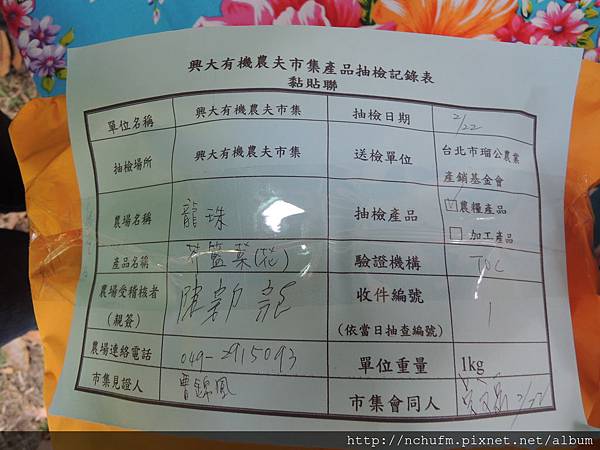 興大有機農夫市集產品抽檢記錄表
黏貼聯
單位名稱 興大有機農夫市集 抽檢日期 2/22
抽檢場所 興大有機農夫市集 送檢單位 台北市瑠公農業
產銷基金會
農場名稱 龍珠 抽檢產品 ☑農糧產品
☐ 加工產品
產品名稱 芥籃菜(花) 驗證機構 TOC
農場受稽核者
(親簽) 陳 龍 收件編號
(依當日抽查編號) 1
農場連絡電話 049-2915093 單位重量 1kg
市集見證人 曾錦鳳 市集會同人 2/22
http://nchufm.pixnet.net/album